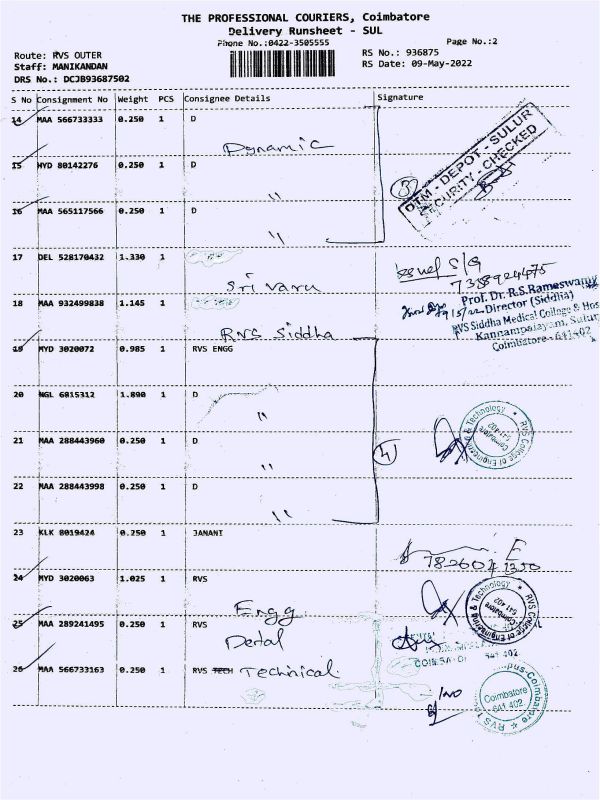 THE PROFESSIONAL COURIERS, Coimbatore
Delivery Runsheet - SUL
Phone No.:0422-3505555
Page No.:2
Route: RVS OUTER
RS No.: 936875
Staff: MANIKANDAN
RS Date: 09-May-2022
DRS No.: DCJB93687502
S No Consignment No Weight PCS Consignee Details Signature
14 MAA 566733333 0.250 1 D
Dynamic
15 MYD 80142276 0.250 1 D
"
16 MAA 565117566 0.250 1 D
"
3
DTM - DEPOT - SULUR
SECURITY - CHECKED
17 DEL 528170432 1.330 1
Sri Varu
S/G
7388924475
18 MAA 932499838 1.145 1
RVS Siddha
Prof. Dr. R.S. Rameswamy
Director (Siddha)
RVS Siddha Medical College & Hos
Kannampalayam, Sulur
Coimbatore - 641402
19 MYD 3020072 0.985 1 RVS ENGG
20 NGL 6015312 1.890 1 D
"
21 MAA 288443960 0.250 1 D
"
4
RVS College of Engineering & Technology
Coimbatore
641 402
22 MAA 288443998 0.250 1 D
"
23 KLK 8019424 0.250 1 JANANI
24 MYD 3020063 1.025 1 RVS
Engg
RVS College of Engineering & Technology
Coimbatore
641 402
25 MAA 289241495 0.250 1 RVS
Dental
641 402
26 MAA 566733163 0.250 1 RVS TECH Technical
Coimbatore
641 402